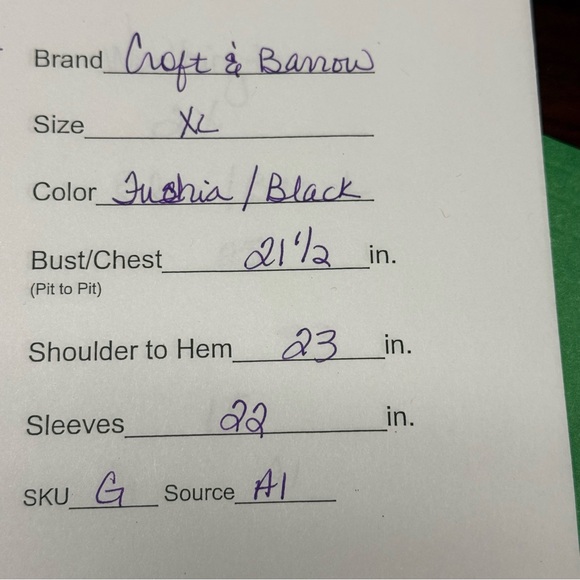 Brand Croft & Barrow
Size XL
Color Fushia / Black
Bust/Chest 21 1/2 in.
(Pit to Pit)
Shoulder to Hem 23 in.
Sleeves 22 in.
SKU G Source A1